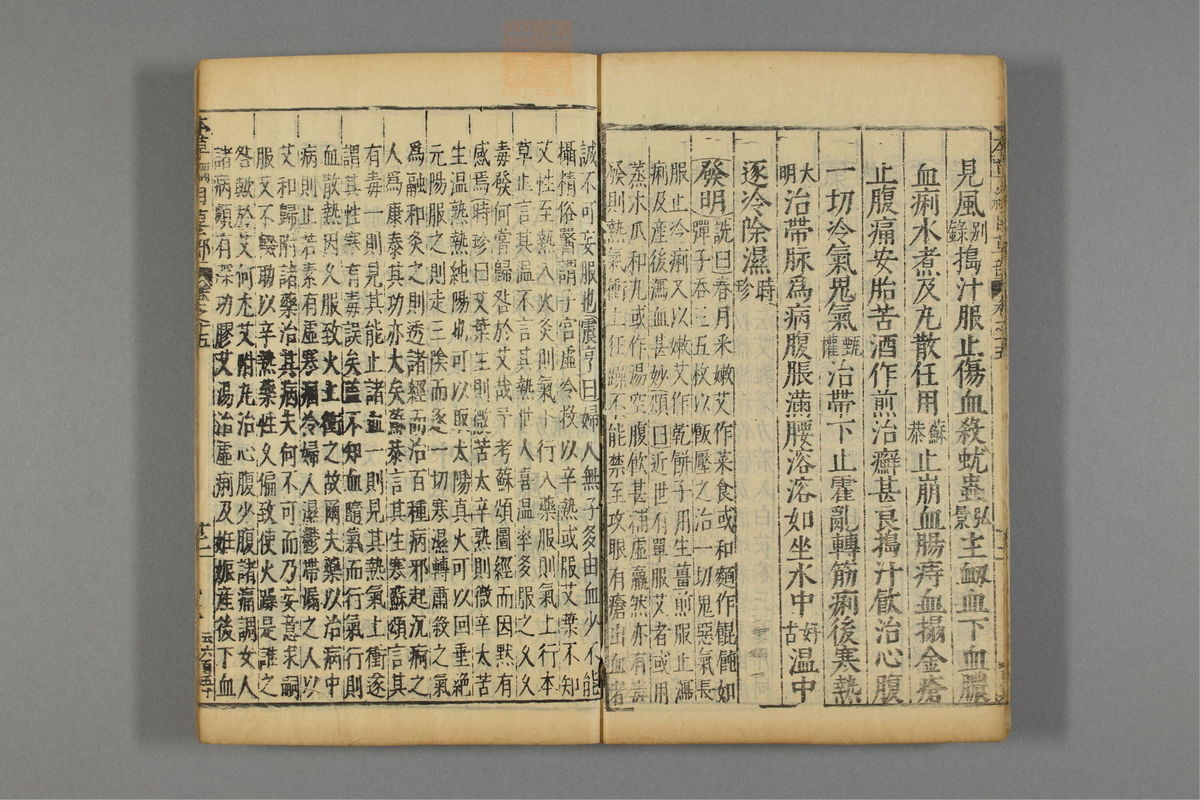 見風別錄搗汁服止傷血殺蚘蟲弘景主衂血下血膿
血痢水煮及丸散任用蘇恭止崩血腸痔血搨金瘡
止腹痛安胎苦酒作煎治癬甚良搗汁飲治心腹
一切冷氣鬼氣甄權治帶下止霍亂轉筋痢後寒熱
大明治帶脉爲病腹脹滿腰溶溶如坐水中好古溫中
逐冷除濕時珍
發明詵曰春月采嫩艾作菜食或和麵作餛飩如
彈子吞三五枚以飯壓之治一切鬼惡氣長
服止冷痢又以嫩艾作乾餅子用生薑煎服止瀉
痢及産後瀉血甚妙頌曰近世有單服艾者或用
蒸木瓜和丸或作湯空腹飲甚補虛羸然亦有毒
發則熱氣衝上狂躁不能禁至攻眼有瘡出血者
誠不可妄服也震亨曰婦人無子多由血少不能
攝精俗醫謂子宮虛冷投以辛熱或服艾葉不知
艾性至熱入火灸則氣下行入藥服則氣上行本
草止言其溫不言其熱世人喜溫率多服之久久
毒發何嘗歸咎於艾哉予考蘇頌圖經而因默有
感焉時珍曰艾葉生則微苦太辛熟則微辛太苦
生溫熟熱純陽也可以取太陽真火可以回垂絕
元陽服之則走三陰而逐一切寒濕轉肅殺之氣
爲融和灸之則透諸經而治百種病邪起沉痾之
人爲康泰其功亦大矣蘇恭言其生寒蘇頌言其
有毒一則見其能止諸血一則見其熱氣上衝遂
謂其性寒有毒誤矣蓋不知血隨氣而行氣行則
血散熱因久服致火上衝之故爾夫藥以治病中
病則止若素有虛寒痼冷婦人濕鬱滯漏之人以
艾和歸附諸藥治其病夫何不可而乃妄意求嗣
服艾不輟助以辛熱藥性久偏致使火躁是誰之
咎歟於艾何尤艾附丸治心腹少腹諸痛調女人
諸病頗有深功膠艾湯治虛痢及妊娠産後下血